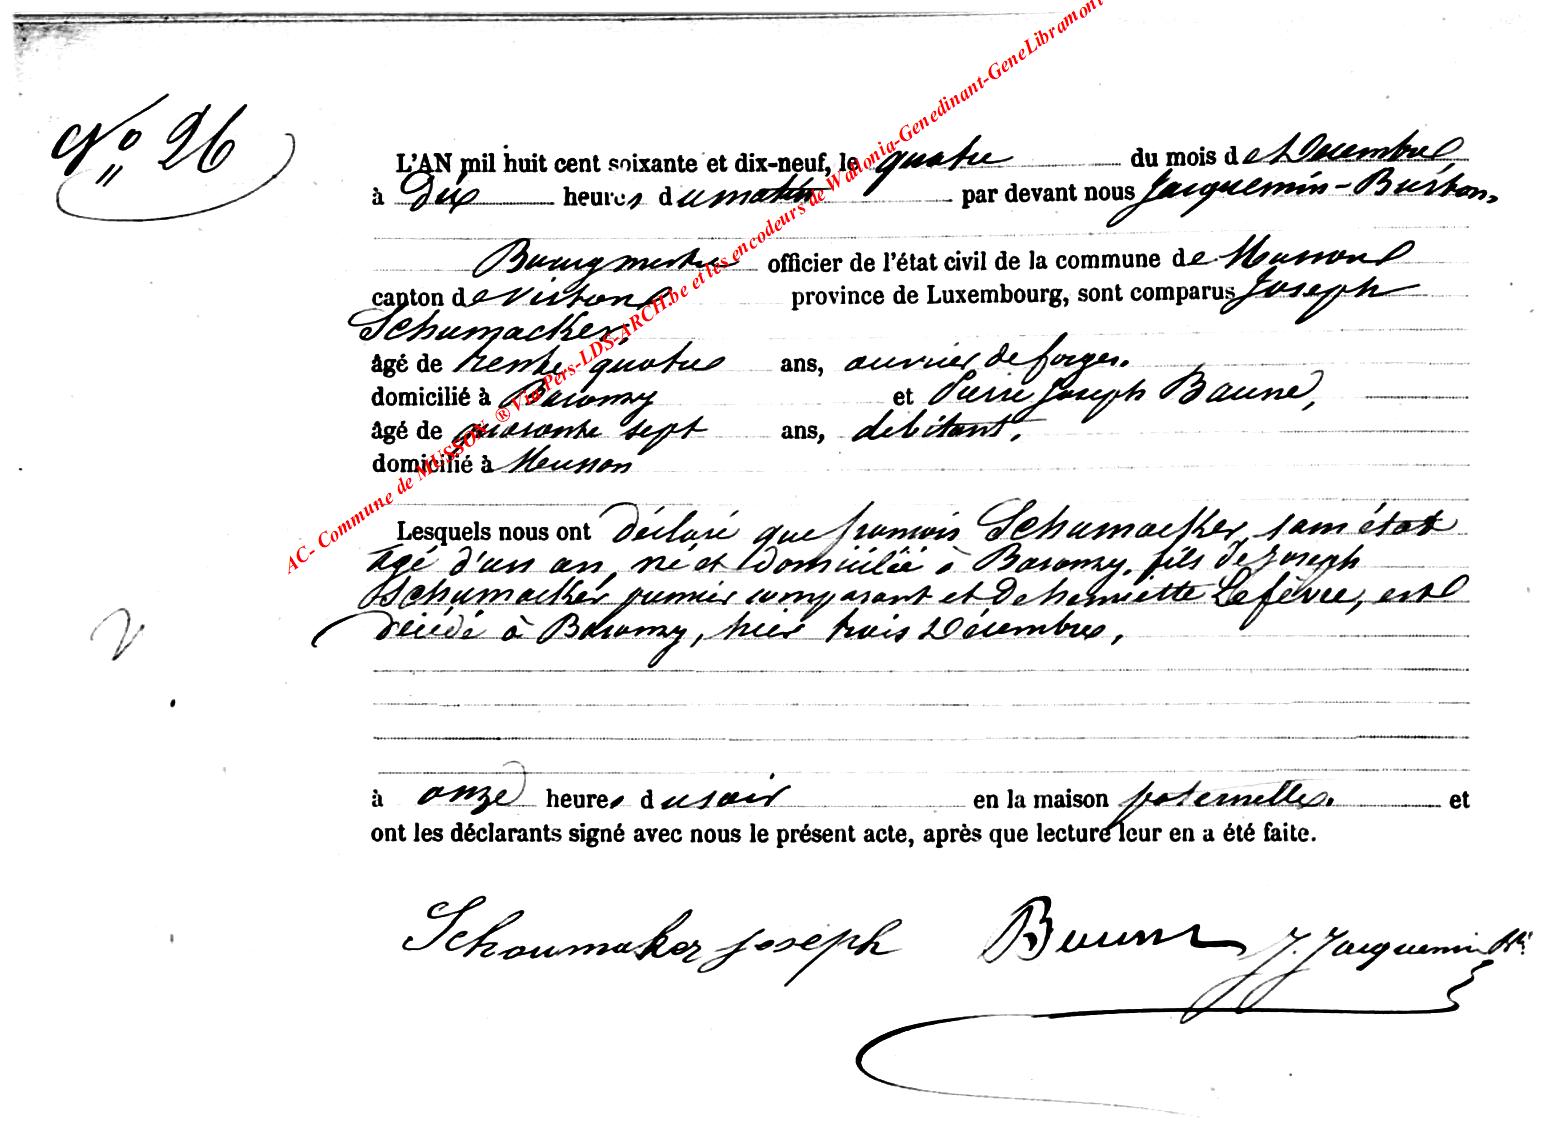 N° 26
L'AN mil huit cent soixante et dix-neuf, le quatre du mois de Décembre,
à Dix heures du matin par devant nous Jacquemin-Burton,
Bourgmestre officier de l'état civil de la commune de Musson
canton de Virton province de Luxembourg, sont comparus Joseph
Schumacker,
âgé de trente quatre ans, ouvrier de forges.
domicilié à Baranzy et Pierre Joseph Baune,
âgé de quarante sept ans, debitant,
domicilié à Musson
Lesquels nous ont déclaré que francois Schumacker, sans état
agé d'un an, né et domicilié à Baranzy, fils de Joseph
Schumacker premier comparant et de henriette Lefèvre, est
décédé à Baranzy, hier trois Décembre,
à onze heures du soir en la maison paternelle. et
ont les déclarants signé avec nous le présent acte, après que lecture leur en a été faite.
Schoumaker joseph Baune J. Jacquemin
AC- Commune de MUSSON ® Via Pers-LDS-ARCH.be et les encodeurs de Wallonia-Genedinant-GeneLibramont